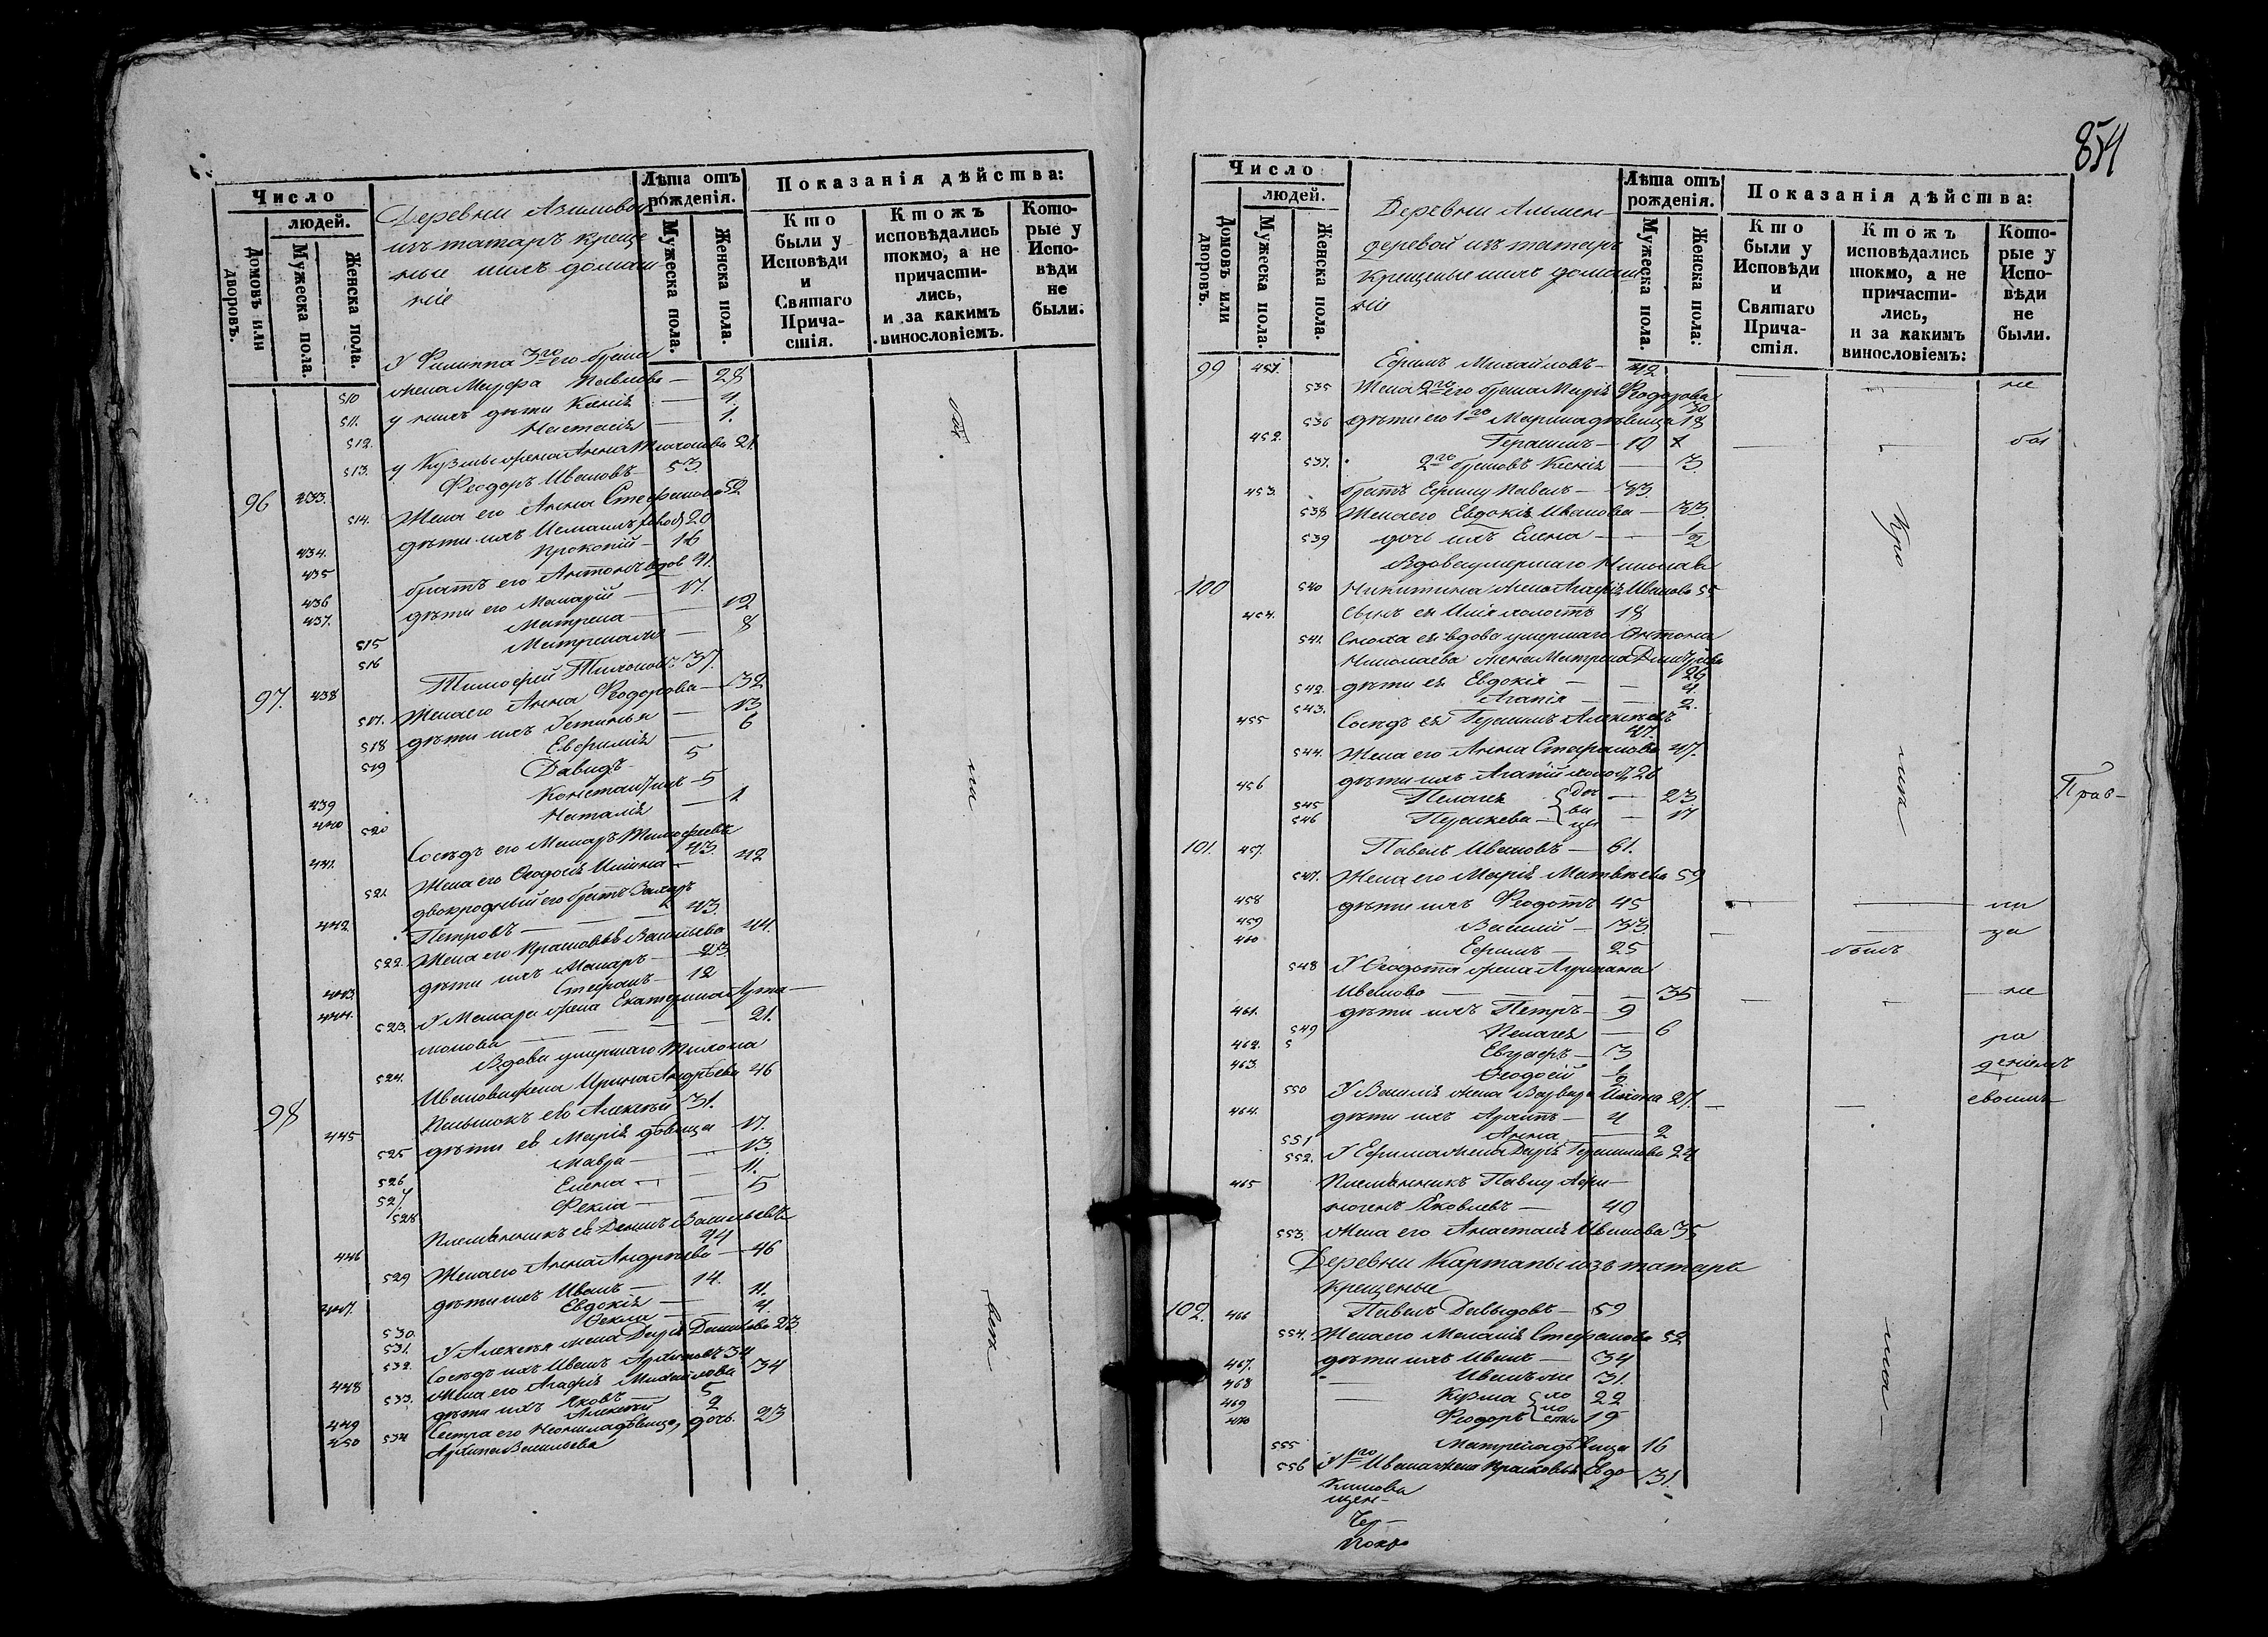 Число
людей.
Домовъ или дворовъ.
Мужеска пола.
Женска пола.
Деревни
изъ татаръ креще
ные ихъ домаш
ніе
Лѣта отъ рожденія.
Мужеска пола.
Женска пола.
Показанія дѣйства:
Кто были у Исповѣди и Святаго Причастія.
Ктожъ исповѣдались токмо, а не причастились, и за какимъ винословіемъ.
Которые у Исповѣди не были.
У Филиппа 3го его брата
510 жена Марфа Павлова — 28
511. у нихъ дѣти Ксенія — 4.
512. Настасія — 1.
513. у Кузьмы жена Анна Тихонова 21.
96 433. Феодоръ Ивановъ — 53.
514. Жена его Анна Стефанова 52
434. дѣти ихъ 20
435 Прокопій — 16
436 братъ его Антонъ вдов 41.
437. дѣти его Макарій — 17.
515 Матрена — 12
516 Матрена — 8
97. 438 Тимофей Тихоновъ 37.
517. Жена его Анна Феодорова — 32
518 дѣти ихъ Устинья — 13
519 Евфимія — 6
439 Давидъ — 5
440 Константинъ — 5
520 Наталія — 1
441. Сосѣдъ его Макаръ Тимофеевъ 43.
521. Жена его Феодосія Ильина — 42
двоюродный его братъ Захаръ
442. Петровъ — 43.
522. Жена его Прасковья Васильева 44.
443. дѣти ихъ Макаръ — 23.
444. Стефанъ — 12
523. У Макара жена Екатерина Арта—
монова — 21.
Вдова умершаго Тихона
98 524. Иванова жена Ирина Андрѣева 46
445 Алексѣй 31.
525 дѣти ея Марія дѣвица 17.
526 Мавра — 13.
527. Елена — 11.
528 Фекла — 5
446 Племянникъ ея Данилъ Васильевъ 44
529 Жена его Анна Андрѣева — 46
447. дѣти ихъ Иванъ — 14.
530. Евдокія — 11.
531. Фекла — 4.
532. У Алексѣя жена Дарія Данилова 23.
448 Сосѣдъ ихъ Иванъ Архиповъ 34
533. Жена его Агафія Михайлова 34
449 дѣти ихъ Яковъ — 5
450 Алексѣй 2
534 Сестра его дѣвица, дочь 23
Архипа Васильева
854
Число
людей.
Домовъ или дворовъ.
Мужеска пола.
Женска пола.
Деревни Альмен—
деровой изъ татаръ
крещеные ихъ домаш
ніе
Лѣта отъ рожденія.
Мужеска пола.
Женска пола:
Показанія дѣйства:
Кто были у Исповѣди и Святаго Причастія.
Ктожъ исповѣдались токмо, а не причастились, и за какимъ винословіемъ:
Которые у Исповѣди не были.
99 451. Ефимъ Михайловъ — 42
535 Жена 2го его брата Марія Феодорова 30
536 дѣти его 1го Марина дѣвица 18
452. Герасимъ — 10
537. 2го братовъ Ксенія — 3
453. братъ Ефиму Павелъ — 33.
538 Жена его Евдокія Иванова — 33.
539 дочь ихъ Елена — 1/2
Вдова умершаго Николая
100 540 Никитина жена Агафія Иванова 55
454. Сынъ ея Илія холостъ 18
541. Сноха ея вдова умершаго Антона
Николаева жена Матрена Дмитріева 26
542. дѣти ея Евдокія — 4.
543. Агапія — 2.
455 Сосѣдъ ея Герасимъ Алексѣевъ 47.
544. Жена его Анна Стефанова 47.
456 дѣти ихъ Агапій холост 26
545 Пелагея — 23
546 Параскева — 17
дѣвицы
101. 457. Павелъ Ивановъ — 61.
547. Жена его Марія Матвѣева 59
458 дѣти ихъ Феодотъ 45
459 Василій — 33.
460 Ефимъ — 25
548 У Феодота жена
Иванова — 35
461. дѣти ихъ Петръ — 9
549 Пелагея — 6
462. Евграфъ — 3
463. Феодосій — 1/2
550 У Василія жена Варвара Ильина 27.
464. дѣти ихъ — 4
551 Анна — 2
552. У Ефима жена Дарія Герасимова 24
465 Племянникъ Павлу Афи—
ногенъ Яковлевъ — 40
553. Жена его Анастасія Иванова 35
Деревни изъ татаръ
крещеные
102. 466 Павелъ Давыдовъ — 59
554. Жена его Меланія Стефанова 52
467. дѣти ихъ Иванъ — 34
468 Иванъ же 31.
469 Кузма 22
470 Феодоръ 19
холосты
555 Матрена дѣвица 16
556 У 1го Ивана жена Прасковья Евдо— 31.
кимова
щен—
Чер—
Покр
не
бы
ни
за
не
ра
деніемъ
своимъ
былъ
Прав—